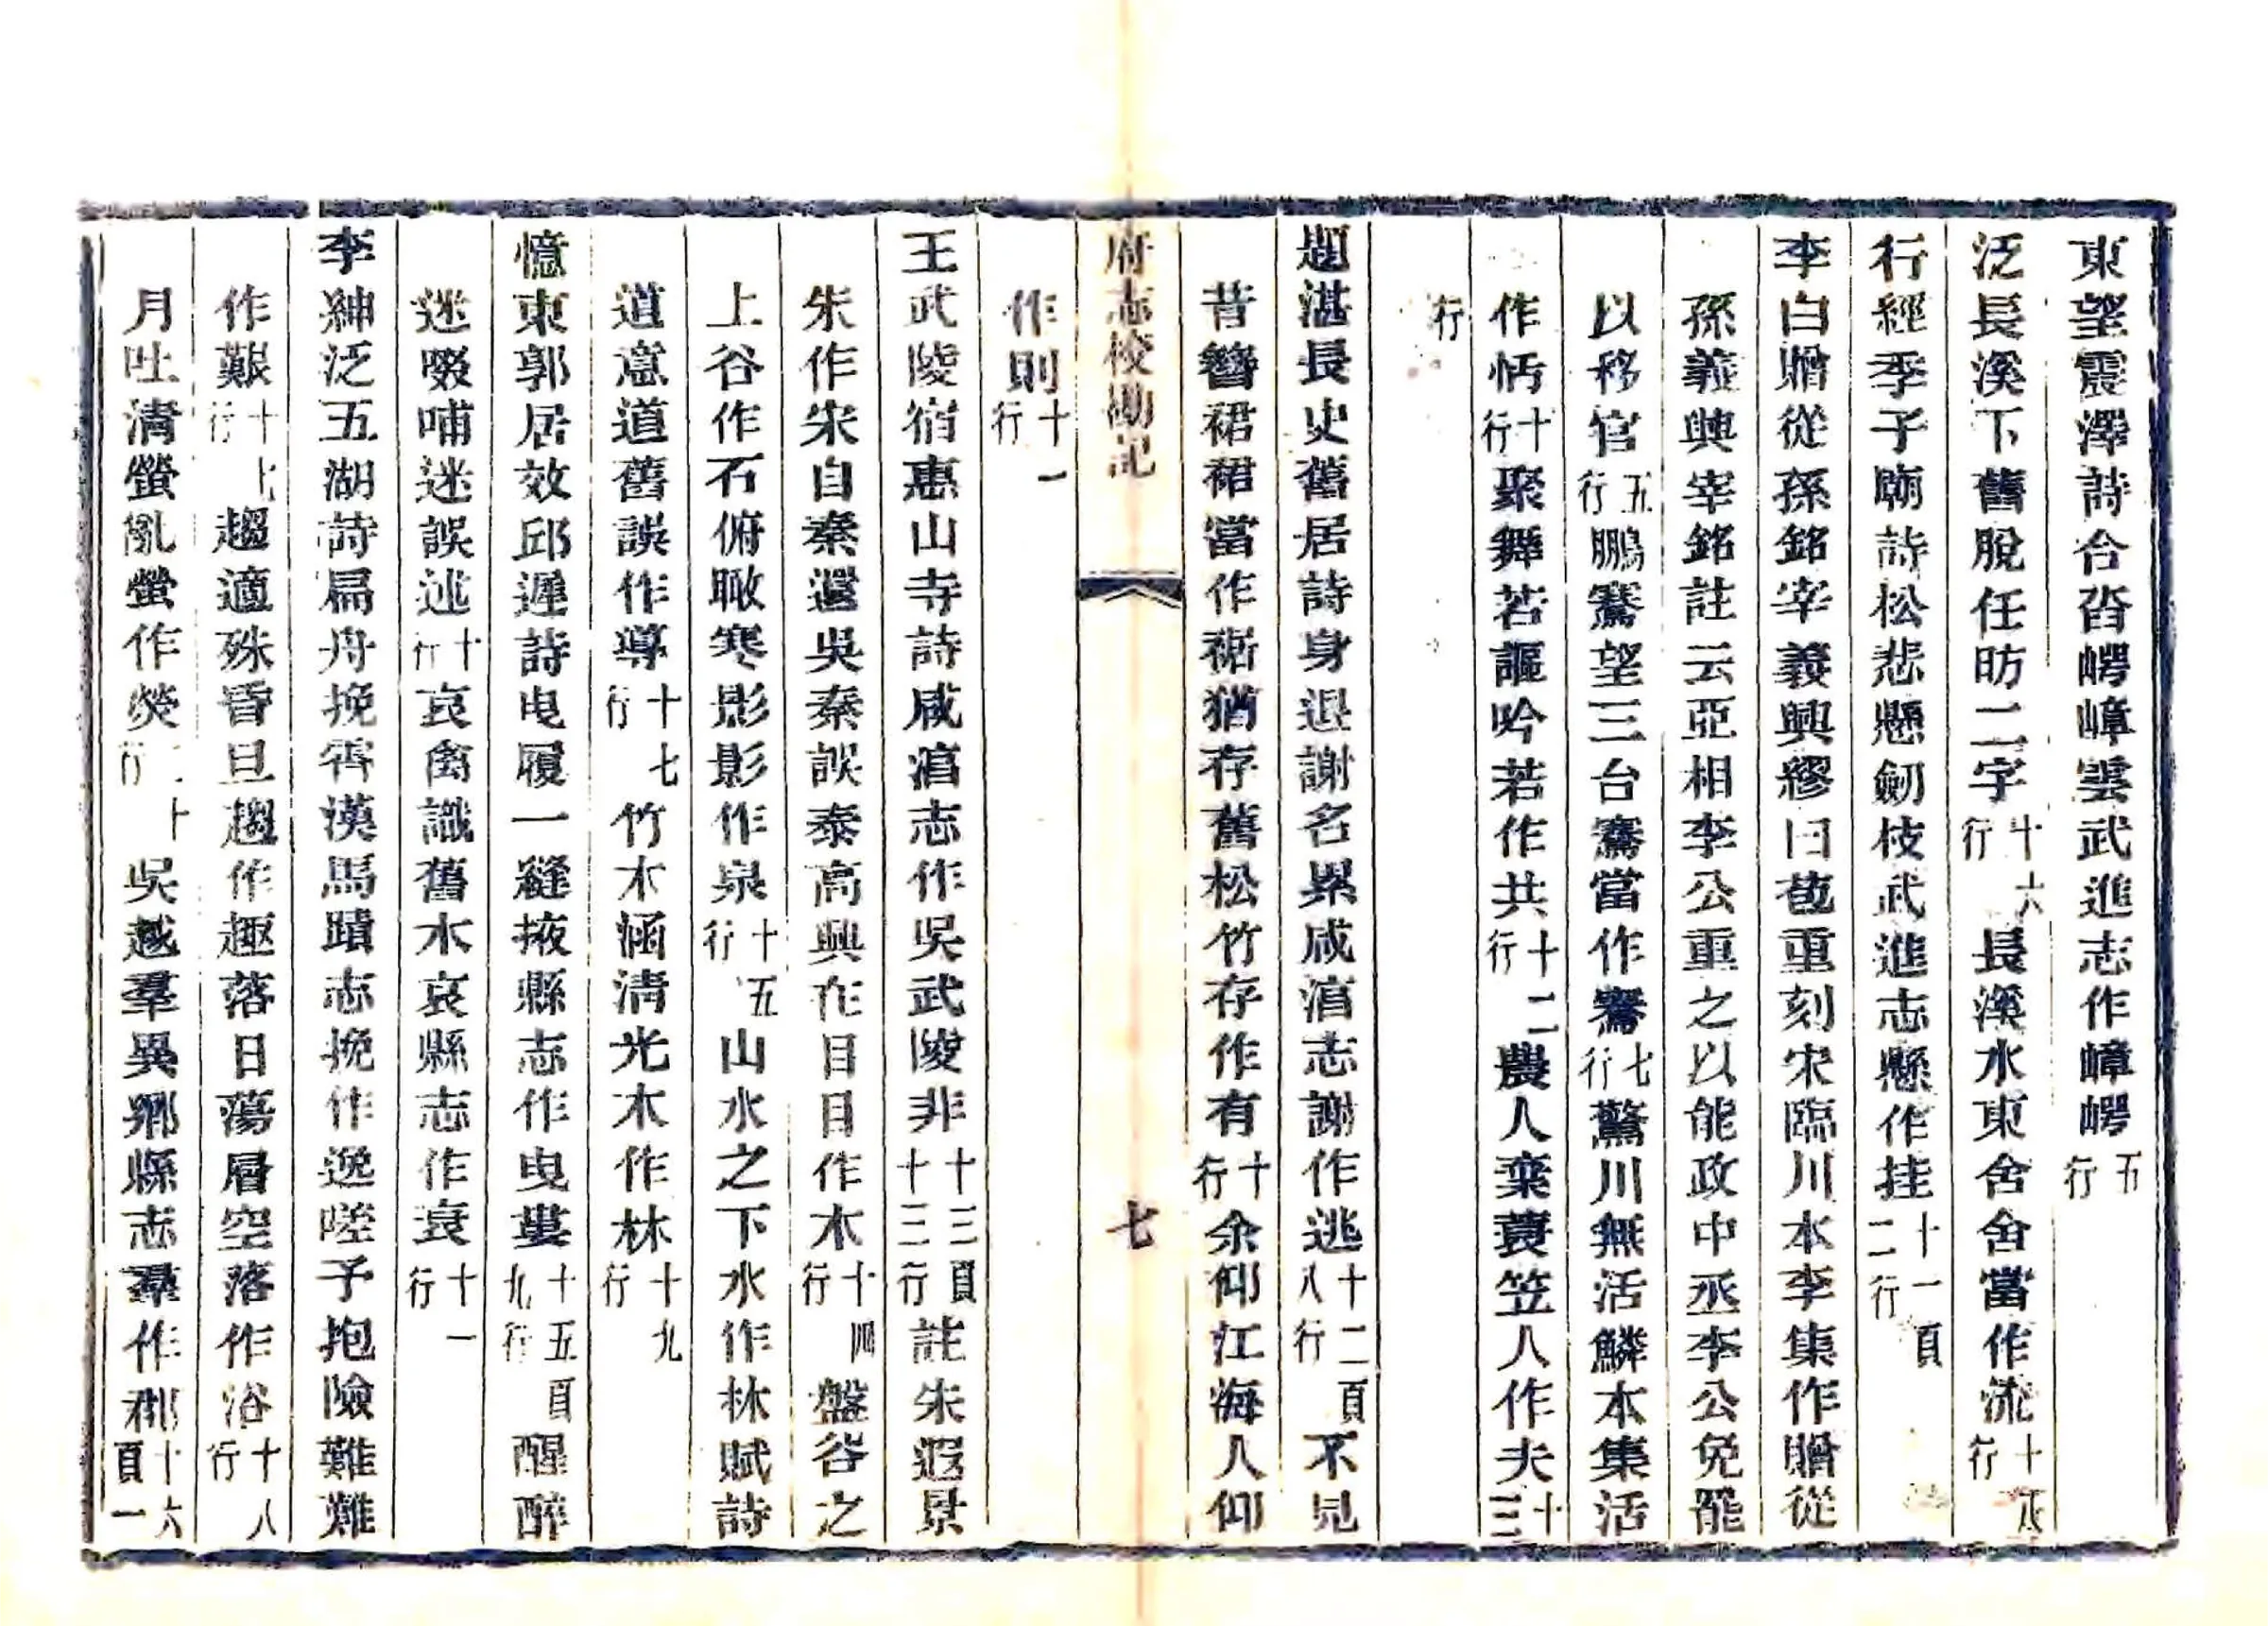 東望震澤詩合沓崿嶂雲武進志作嶂崿五行
泛長溪下舊脫任昉二字十六行長溪水東舍舍當作流十行
行經季子廟詩松悲懸劒枝武進志懸作挂十一頁二行
李白贈從孫銘宰義興繆曰芑重刻宋臨川本李集作贈從
孫義興宰銘註云亞相李公重之以能政中丞李公免罷
以移官五行鵬騫望三台騫當作鶱七行驚川無活鱗本集活
作恬十行聚舞若謳吟若作共十二行農人棄蓑笠人作夫十三
行
題湛長史舊居詩身退謝名累咸淳志謝作逃十二頁八行不見
昔簪裙裙當作裾猶存舊松竹存作有十行余仰江海人仰
府志校勘記
七
作則十一行
王武陵宿惠山寺詩咸淳志作吳武陵非十三頁十三行註朱遐景
朱作宋自秦還吳秦誤泰高興作目目作木十四行盤谷之
上谷作石俯瞰寒影影作泉十五行山水之下水作林賦詩
道意道舊誤作導十七行竹木涵清光木作林十九行
憶東郭居效邱遲詩曳履一縫掖縣志作曳婁十五頁九行醒醉
迷啜哺迷誤述十行哀禽識舊木哀縣志作衰十一行
李紳泛五湖詩扁舟挽霄漢馬蹟志挽作逸嗟予抱險難難
作艱十七行趨適殊昏旦趨作趣落日蕩層空落作浴十八行
月吐清螢亂螢作熒二十行吳越羣異鄉縣志羣作郡十六頁一